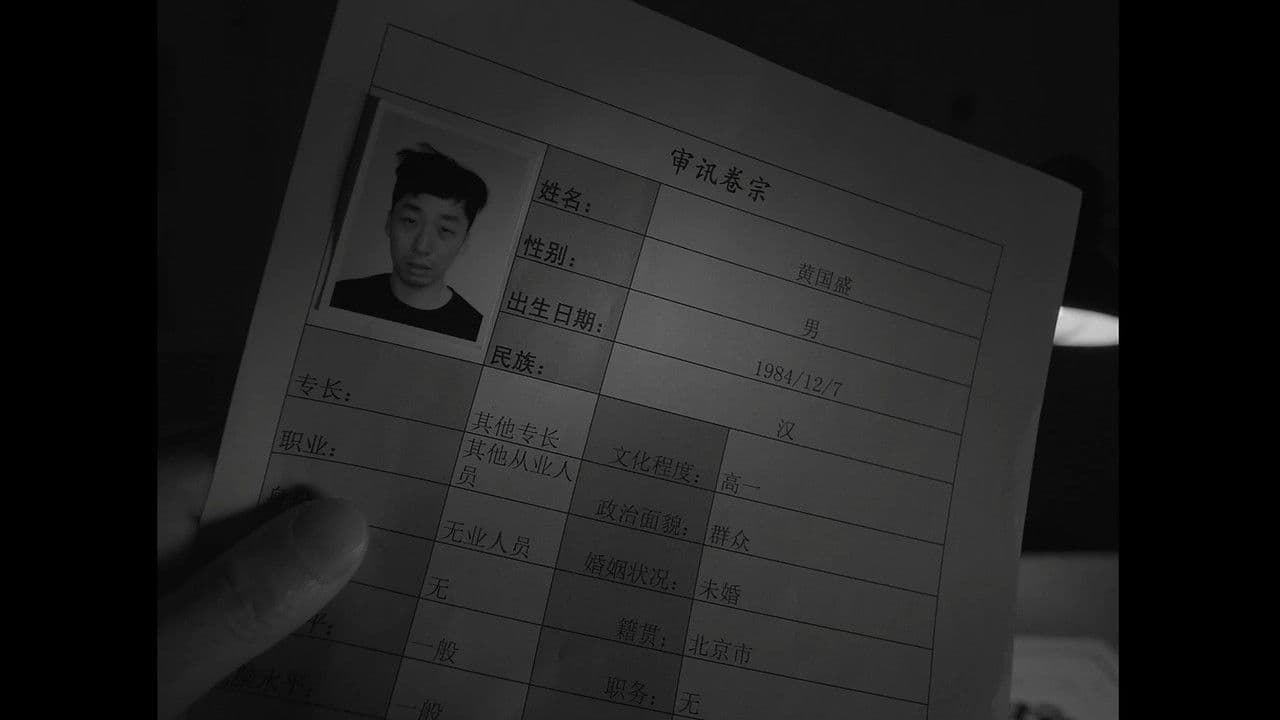 审讯卷宗
姓名： 黄国盛
性别： 男
出生日期： 1984/12/7
民族： 汉
专长： 其他专长 文化程度： 高一
职业： 其他从业人员 政治面貌： 群众
无业人员 婚姻状况： 未婚
无 籍贯： 北京市
平： 一般 职务： 无
水平： 一般